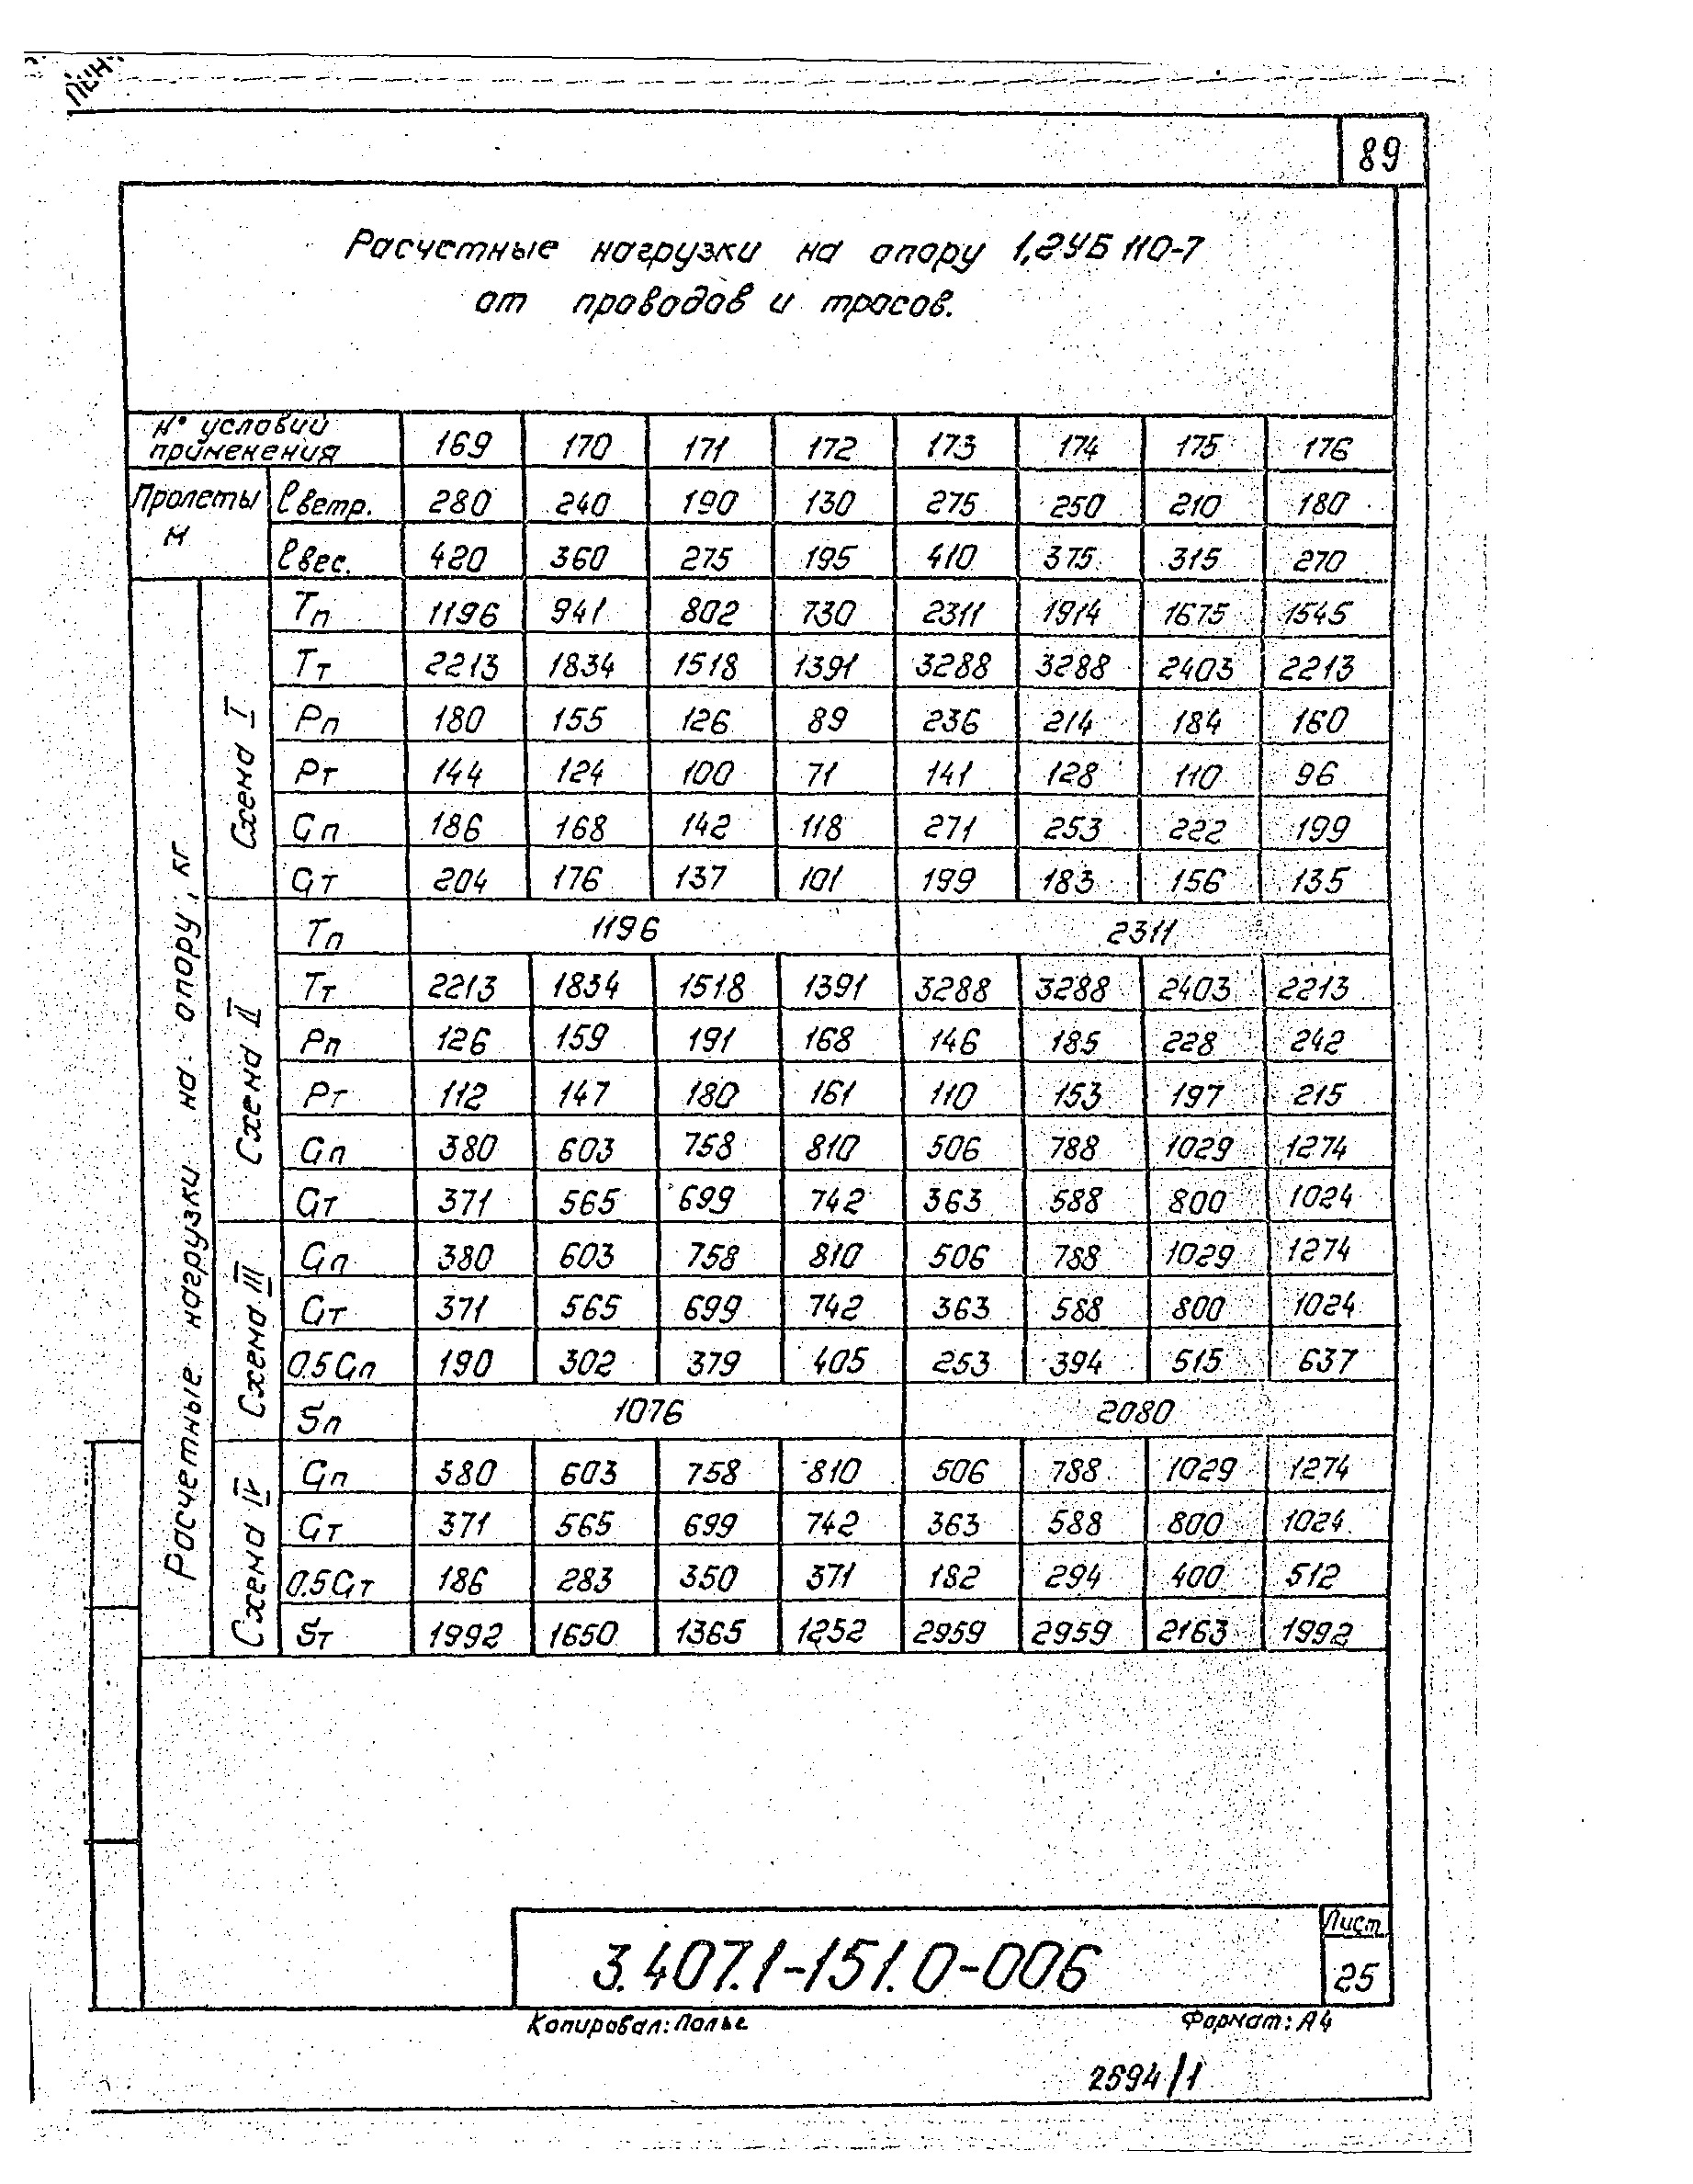 89
Расчетные нагрузки на опору 1,2УБ 110-7
от проводов и тросов.
№ условий применения 169 170 171 172 173 174 175 176
Пролеты м
ℓветр. 280 240 190 130 275 250 210 180
ℓвес. 420 360 275 195 410 375 315 270
Расчетные нагрузки на опору, кг
Схема I
Тп 1196 941 802 730 2311 1914 1675 1545
Тт 2213 1834 1518 1391 3288 3288 2403 2213
Рп 180 155 126 89 236 214 184 160
Рт 144 124 100 71 141 128 110 96
Gп 186 168 142 118 271 253 222 199
Gт 204 176 137 101 199 183 156 135
Схема II
Тп 1196 2311
Тт 2213 1834 1518 1391 3288 3288 2403 2213
Рп 126 159 191 168 146 185 228 242
Рт 112 147 180 161 110 153 197 215
Gп 380 603 758 810 506 788 1029 1274
Gт 371 565 699 742 363 588 800 1024
Схема III
Gп 380 603 758 810 506 788 1029 1274
Gт 371 565 699 742 363 588 800 1024
0.5Gп 190 302 379 405 253 394 515 637
Sп 1076 2080
Схема IV
Gп 380 603 758 810 506 788 1029 1274
Gт 371 565 699 742 363 588 800 1024
0.5Gт 186 283 350 371 182 294 400 512
Sт 1992 1650 1365 1252 2959 2959 2163 1992
3.407.1-151.0-006
Лист
25
Копировал: Полье
Формат: А4
2694/1